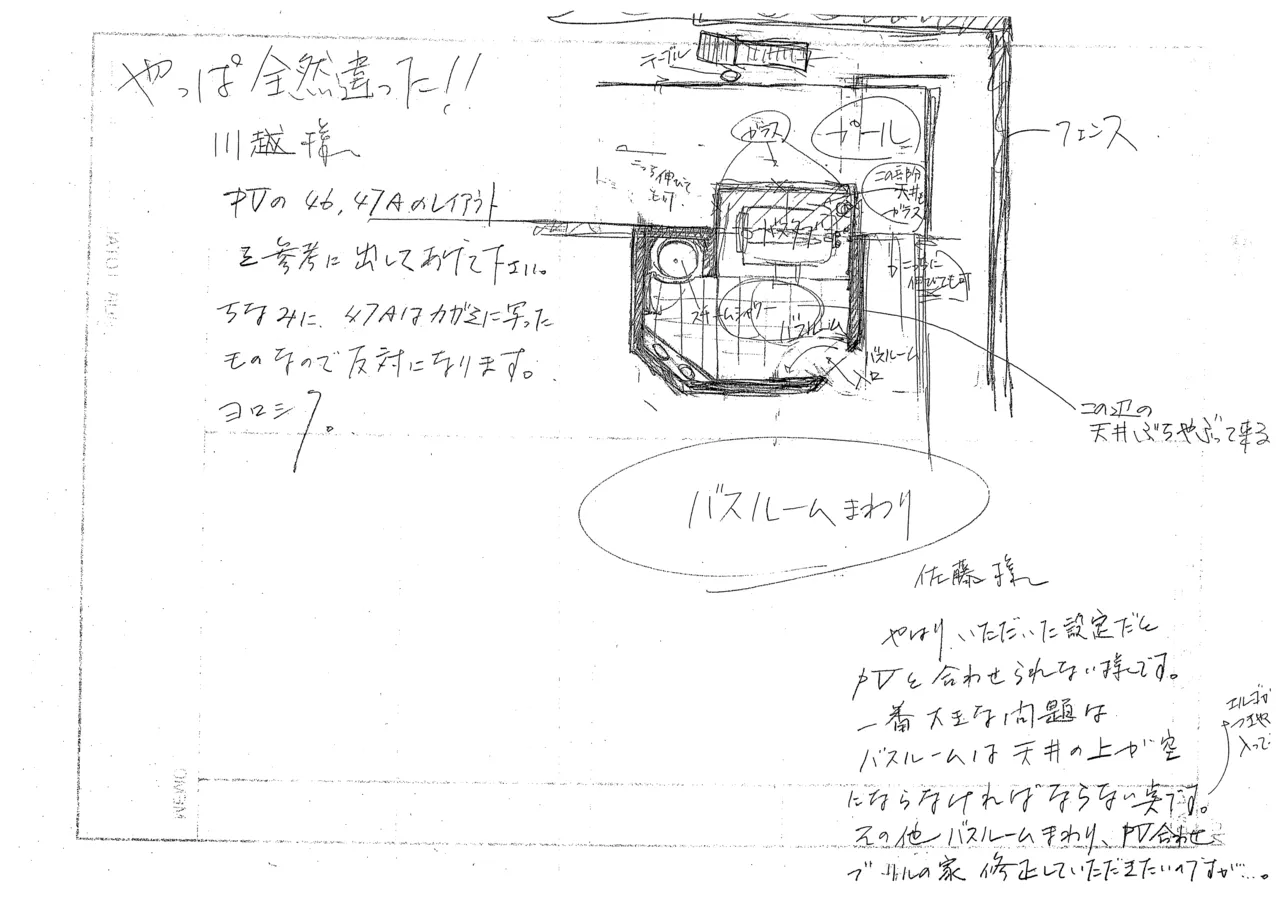 やっぱ全然違った!!
川越様
PVの46,47Aのレイアウト
を参考に出してあげて下さい。
ちなみに、47Aはカガミに写った
ものなので反対になります。
ヨロシク。
テーブル
ガラス
プール
フェンス
こっち伸びて
も可
この部分
天井も
ガラス
バスタブ
伸びても可
スチームシャワー
バスルーム
バスルーム
入口
この辺の
天井ぶちやぶって来る
バスルームまわり
佐藤様
やはり、いただいた設定だと
PVと合わせられない様です。
一番大きな問題は
バスルームは天井の上が空
にならなければならない実です。
その他バスルームまわり、PV合わせ
でホテルの家 修正していただきたいのですが…。
MEMO